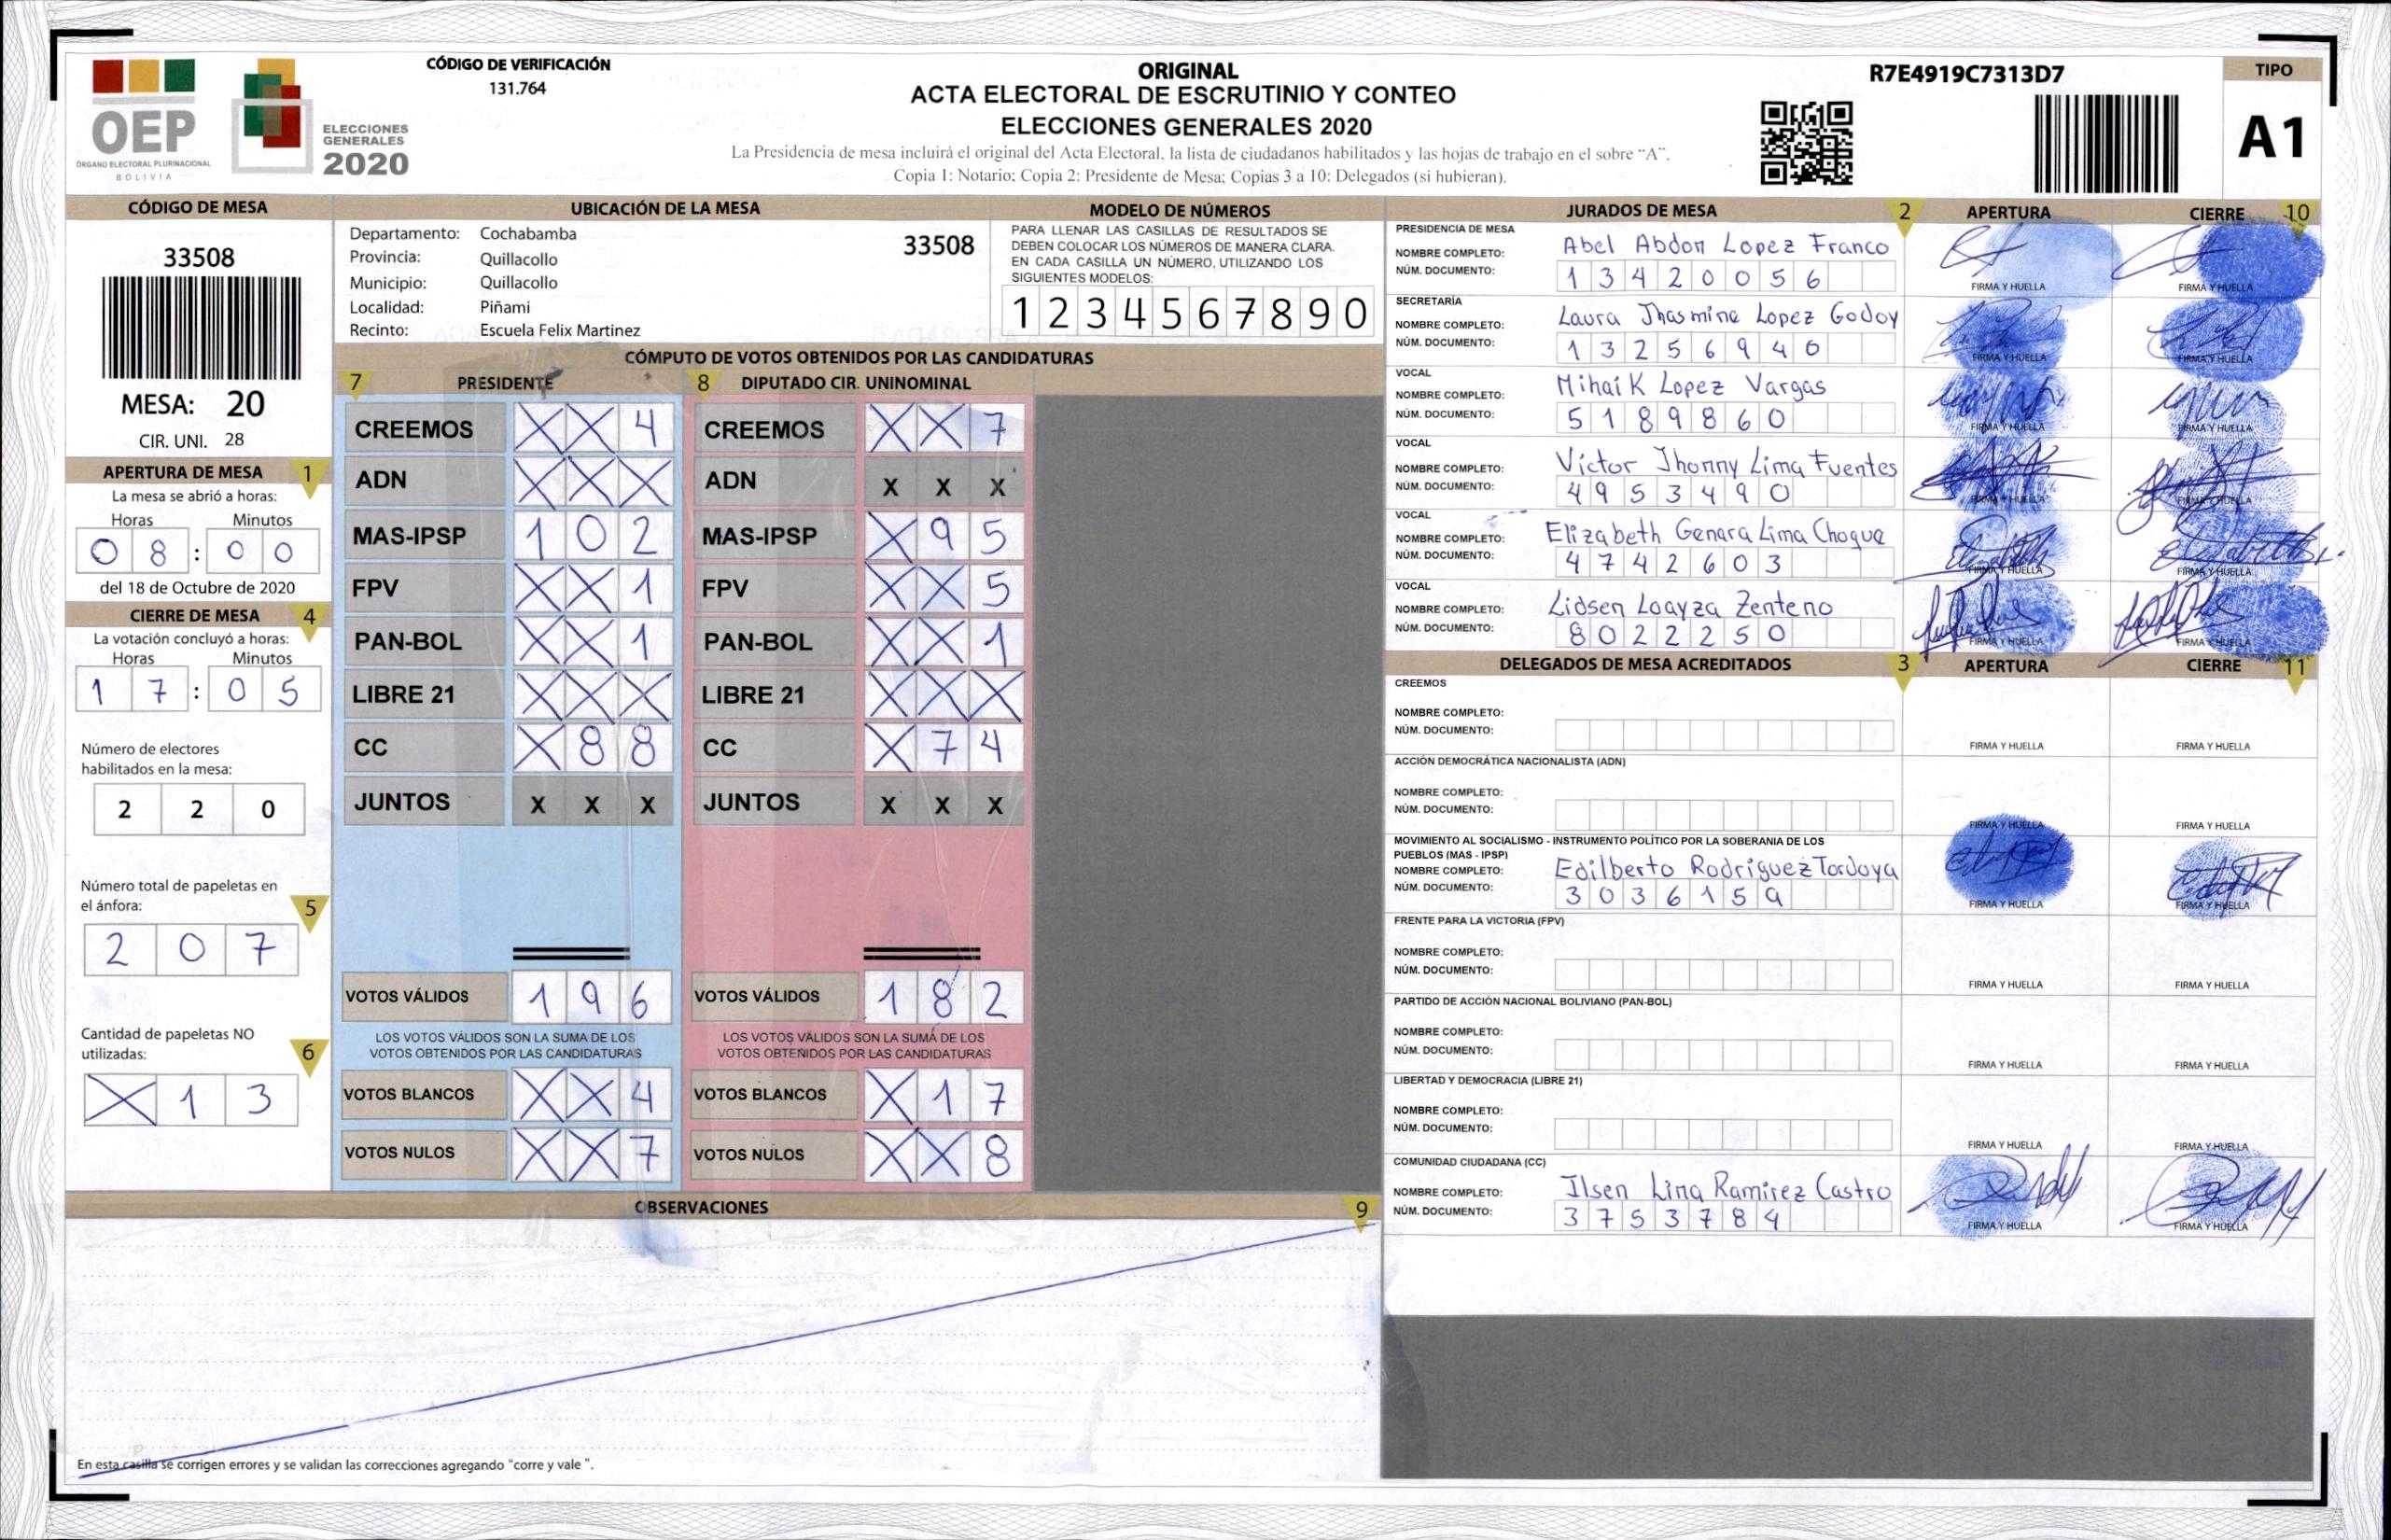 OEP
ÓRGANO ELECTORAL PLURINACIONAL
BOLIVIA
ELECCIONES
GENERALES
2020
CÓDIGO DE VERIFICACIÓN
131.764
ORIGINAL
ACTA ELECTORAL DE ESCRUTINIO Y CONTEO
ELECCIONES GENERALES 2020
La Presidencia de mesa incluirá el original del Acta Electoral, la lista de ciudadanos habilitados y las hojas de trabajo en el sobre "A".
Copia 1: Notario; Copia 2: Presidente de Mesa; Copias 3 a 10: Delegados (si hubieran).
R7E4919C7313D7
TIPO
A1
CÓDIGO DE MESA
33508
MESA: 20
CIR. UNI. 28
APERTURA DE MESA 1
La mesa se abrió a horas:
Horas Minutos
0 8 : 0 0
del 18 de Octubre de 2020
CIERRE DE MESA 4
La votación concluyó a horas:
Horas Minutos
1 7 : 0 5
Número de electores
habilitados en la mesa:
2 2 0
Número total de papeletas en
el ánfora: 5
2 0 7
Cantidad de papeletas NO
utilizadas: 6
X 1 3
UBICACIÓN DE LA MESA
Departamento: Cochabamba 33508
Provincia: Quillacollo
Municipio: Quillacollo
Localidad: Piñami
Recinto: Escuela Felix Martinez
MODELO DE NÚMEROS
PARA LLENAR LAS CASILLAS DE RESULTADOS SE
DEBEN COLOCAR LOS NÚMEROS DE MANERA CLARA.
EN CADA CASILLA UN NÚMERO, UTILIZANDO LOS
SIGUIENTES MODELOS:
1 2 3 4 5 6 7 8 9 0
CÓMPUTO DE VOTOS OBTENIDOS POR LAS CANDIDATURAS
7 PRESIDENTE 8 DIPUTADO CIR. UNINOMINAL
CREEMOS X X 4 CREEMOS X X 7
ADN X X X ADN X X X
MAS-IPSP 1 0 2 MAS-IPSP X 9 5
FPV X X 1 FPV X X 5
PAN-BOL X X 1 PAN-BOL X X 1
LIBRE 21 X X X LIBRE 21 X X X
CC X 8 8 CC X 7 4
JUNTOS X X X JUNTOS X X X
VOTOS VÁLIDOS 1 9 6 VOTOS VÁLIDOS 1 8 2
LOS VOTOS VÁLIDOS SON LA SUMA DE LOS LOS VOTOS VÁLIDOS SON LA SUMA DE LOS
VOTOS OBTENIDOS POR LAS CANDIDATURAS VOTOS OBTENIDOS POR LAS CANDIDATURAS
VOTOS BLANCOS X X 4 VOTOS BLANCOS X 1 7
VOTOS NULOS X X 7 VOTOS NULOS X X 8
OBSERVACIONES 9
En esta casilla se corrigen errores y se validan las correcciones agregando "corre y vale ".
JURADOS DE MESA 2 APERTURA CIERRE 10
PRESIDENCIA DE MESA
NOMBRE COMPLETO: Abel Abdon Lopez Franco
NÚM. DOCUMENTO: 1 3 4 2 0 0 5 6
FIRMA Y HUELLA FIRMA Y HUELLA
SECRETARÍA
NOMBRE COMPLETO: Laura Jhasmine Lopez Godoy
NÚM. DOCUMENTO: 1 3 2 5 6 9 4 0
FIRMA Y HUELLA FIRMA Y HUELLA
VOCAL
NOMBRE COMPLETO: Mihaik Lopez Vargas
NÚM. DOCUMENTO: 5 1 8 9 8 6 0
FIRMA Y HUELLA FIRMA Y HUELLA
VOCAL
NOMBRE COMPLETO: Victor Jhonny Lima Fuentes
NÚM. DOCUMENTO: 4 9 5 3 4 9 0
FIRMA Y HUELLA FIRMA Y HUELLA
VOCAL
NOMBRE COMPLETO: Elizabeth Genara Lima Choque
NÚM. DOCUMENTO: 4 7 4 2 6 0 3
FIRMA Y HUELLA FIRMA Y HUELLA
VOCAL
NOMBRE COMPLETO: Lidsen Loayza Zenteno
NÚM. DOCUMENTO: 8 0 2 2 2 5 0
FIRMA Y HUELLA FIRMA Y HUELLA
DELEGADOS DE MESA ACREDITADOS 3 APERTURA CIERRE 11
CREEMOS
NOMBRE COMPLETO:
NÚM. DOCUMENTO:
FIRMA Y HUELLA FIRMA Y HUELLA
ACCIÓN DEMOCRÁTICA NACIONALISTA (ADN)
NOMBRE COMPLETO:
NÚM. DOCUMENTO:
FIRMA Y HUELLA FIRMA Y HUELLA
MOVIMIENTO AL SOCIALISMO - INSTRUMENTO POLÍTICO POR LA SOBERANIA DE LOS
PUEBLOS (MAS - IPSP)
NOMBRE COMPLETO: Edilberto Rodriguez Tordoya
NÚM. DOCUMENTO: 3 0 3 6 1 5 9
FIRMA Y HUELLA FIRMA Y HUELLA
FRENTE PARA LA VICTORIA (FPV)
NOMBRE COMPLETO:
NÚM. DOCUMENTO:
FIRMA Y HUELLA FIRMA Y HUELLA
PARTIDO DE ACCIÓN NACIONAL BOLIVIANO (PAN-BOL)
NOMBRE COMPLETO:
NÚM. DOCUMENTO:
FIRMA Y HUELLA FIRMA Y HUELLA
LIBERTAD Y DEMOCRACIA (LIBRE 21)
NOMBRE COMPLETO:
NÚM. DOCUMENTO:
FIRMA Y HUELLA FIRMA Y HUELLA
COMUNIDAD CIUDADANA (CC)
NOMBRE COMPLETO: Ilsen Lina Ramirez Castro
NÚM. DOCUMENTO: 3 7 5 3 7 8 4
FIRMA Y HUELLA FIRMA Y HUELLA